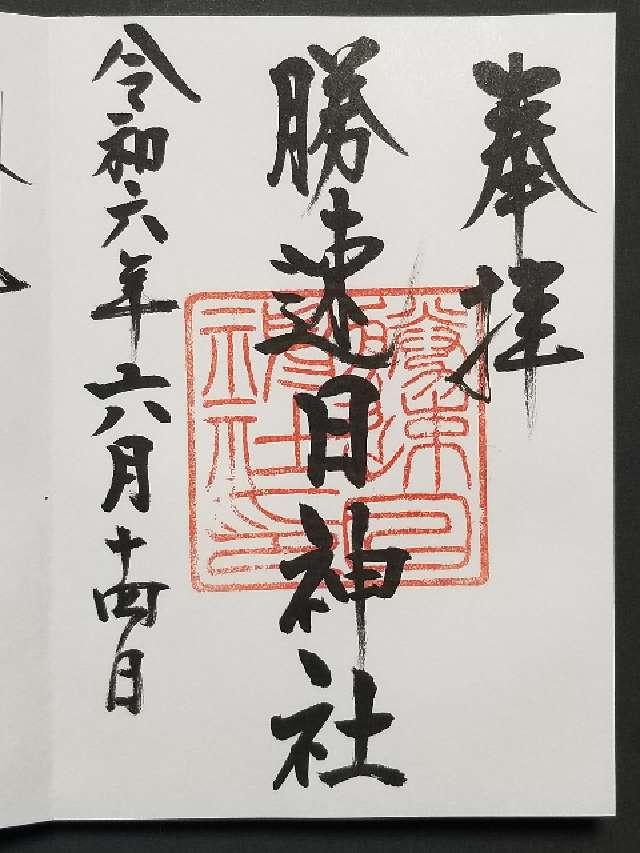 奉拝
勝速日神社
令和六年六月十四日